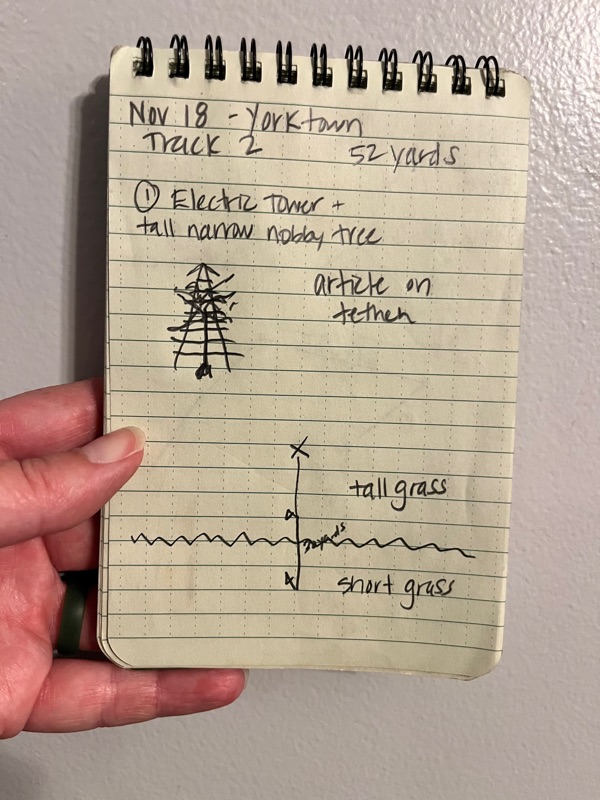 Nov 18 - Yorktown
Track 2 52 yards
① Electric Tower +
tall narrow nobby tree
article on
tether
X
tall grass
30 yards
short grass